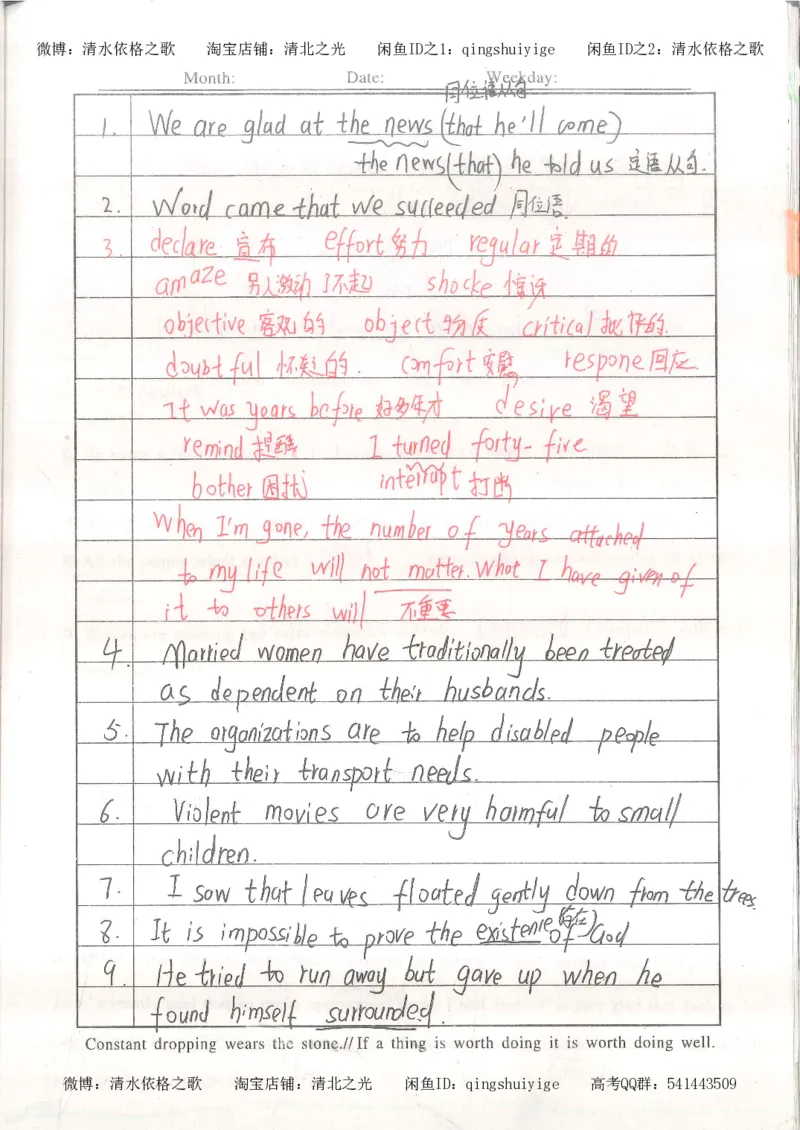 微博：清水依格之歌 淘宝店铺：清北之光 闲鱼ID之1：qingshuiyige 闲鱼ID之2：清水依格之歌
Month: Date: Weekday:
同位语从句
1. We are glad at the news (that he'll come)
the news (that) he told us 定语从句.
2. Word came that we succeeded 同位语
3. declare 宣布 effort 努力 regular 定期的
amaze 别人激动 了不起 shocke 惊讶
objective 客观的 object 物质 critical 批评的.
doubtful 怀疑的. comfort 安慰 respone 回应.
It was years before 好多年才 desire 渴望
remind 提醒 I turned forty-five
bother 困扰 interrupt 打断
When I'm gone, the number of years attached
to my life will not matter. What I have given of
it to others will 不重要
4. Married women have traditionally been treated
as dependent on their husbands.
5. The organizations are to help disabled people
with their transport needs.
6. Violent movies are very harmful to small
children.
7. I saw that leaves floated gently down from the trees.
8. It is impossible to prove the existence (存在) of God
9. He tried to run away but gave up when he
found himself surrounded.
Constant dropping wears the stone.//If a thing is worth doing it is worth doing well.
微博：清水依格之歌 淘宝店铺：清北之光 闲鱼ID：qingshuiyige 高考QQ群：541443509